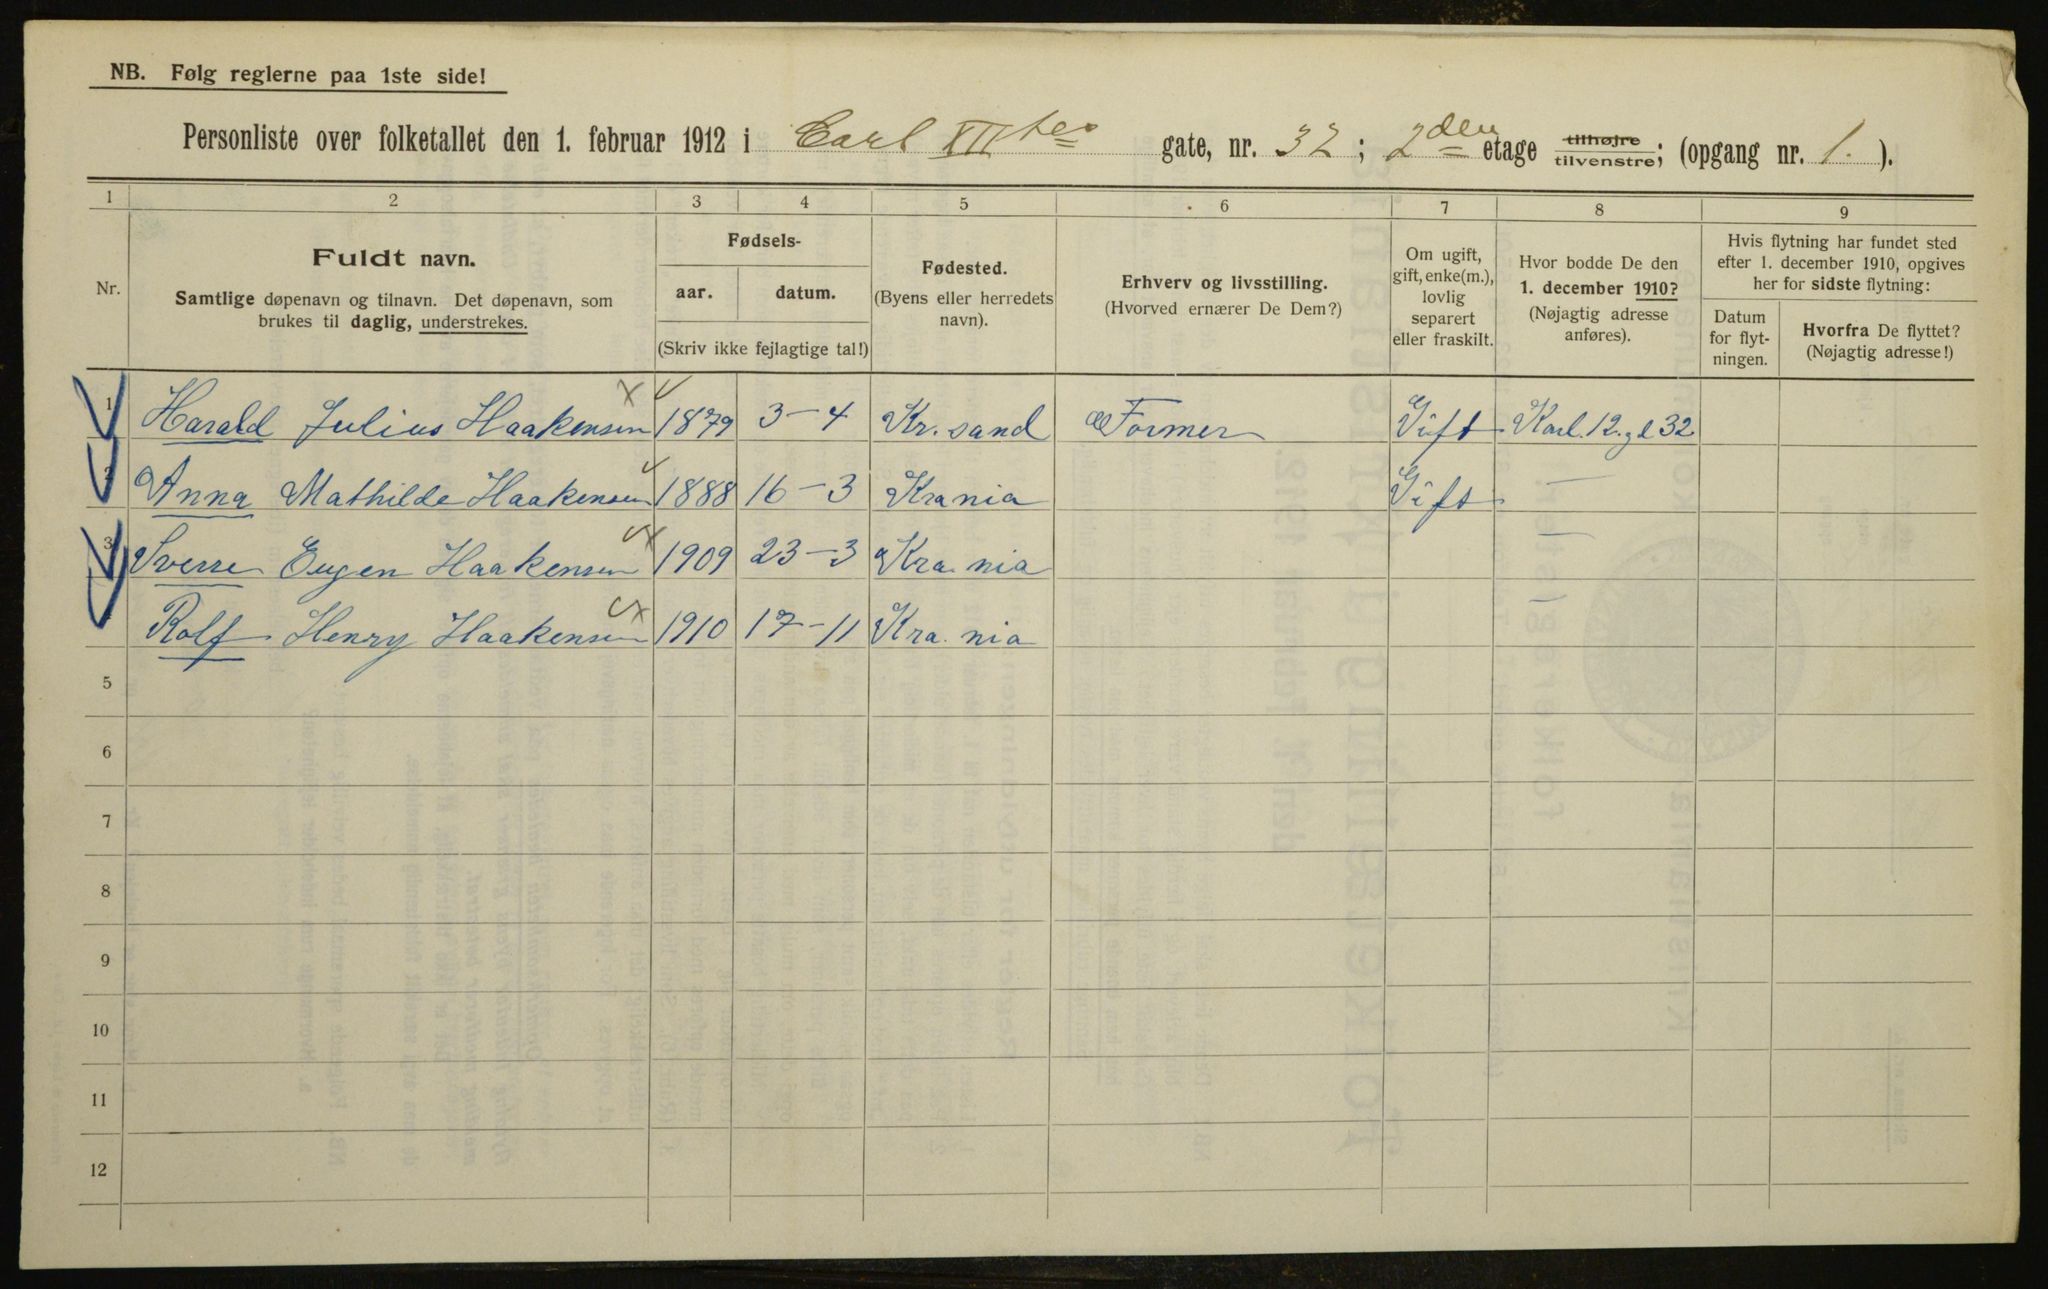 NB. Følg reglerne paa 1ste side!
Personliste over folketallet den 1. februar 1912 i Carl XII tes gate, nr. 32 ; 2den etage tilhøjre tilvenstre; (opgang nr. 1. ).
1 2 3 4 5 6 7 8 9
Nr.
Fuldt navn.
Samtlige døpenavn og tilnavn. Det døpenavn, som
brukes til daglig, understrekes.
Fødsels-
aar. datum.
(Skriv ikke fejlagtige tal!)
Fødested.
(Byens eller herredets
navn).
Erhverv og livsstilling.
(Hvorved ernærer De Dem?)
Om ugift,
gift, enke(m.),
lovlig
separert
eller fraskilt.
Hvor bodde De den
1. december 1910?
(Nøjagtig adresse
anføres).
Hvis flytning har fundet sted
efter 1. december 1910, opgives
her for sidste flytning:
Datum
for flyt-
ningen.
Hvorfra De flyttet?
(Nøjagtig adresse!)
1 Harald Julius Haakensen 1879 3-4 Kr.sand Former Gift Karl.12.gt 32
2 Anna Mathilde Haakensen 1888 16-3 Krania Gift —
3 Sverre Eugen Haakensen 1909 23-3 Kra.nia —
Rolf Henry Haakensen 1910 17-11 Kra.nia —
5
6
7
8
9
10
11
12